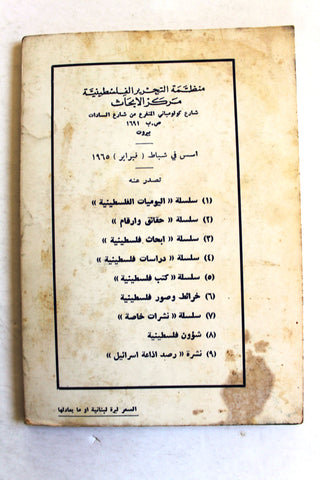 منظمة التحرير الفلسطينية
مركز الابحاث
شارع كولومباني المتفرع من شارع السادات
ص.ب ١٦٩١
بيروت
اسس في شباط ( فبراير ) ١٩٦٥
تصدر عنه
(١) سلسلة « اليوميات الفلسطينية »
(٢) سلسلة « حقائق وارقام »
(٣) سلسلة « ابحاث فلسطينية »
(٤) سلسلة « دراسات فلسطينية »
(٥) سلسلة « كتب فلسطينية »
(٦) خرائط وصور فلسطينية
(٧) سلسلة « نشرات خاصة »
(٨) شؤون فلسطينية
(٩) نشرة « رصد اذاعة اسرائيل »
السعر ليرة لبنانية او ما يعادلها